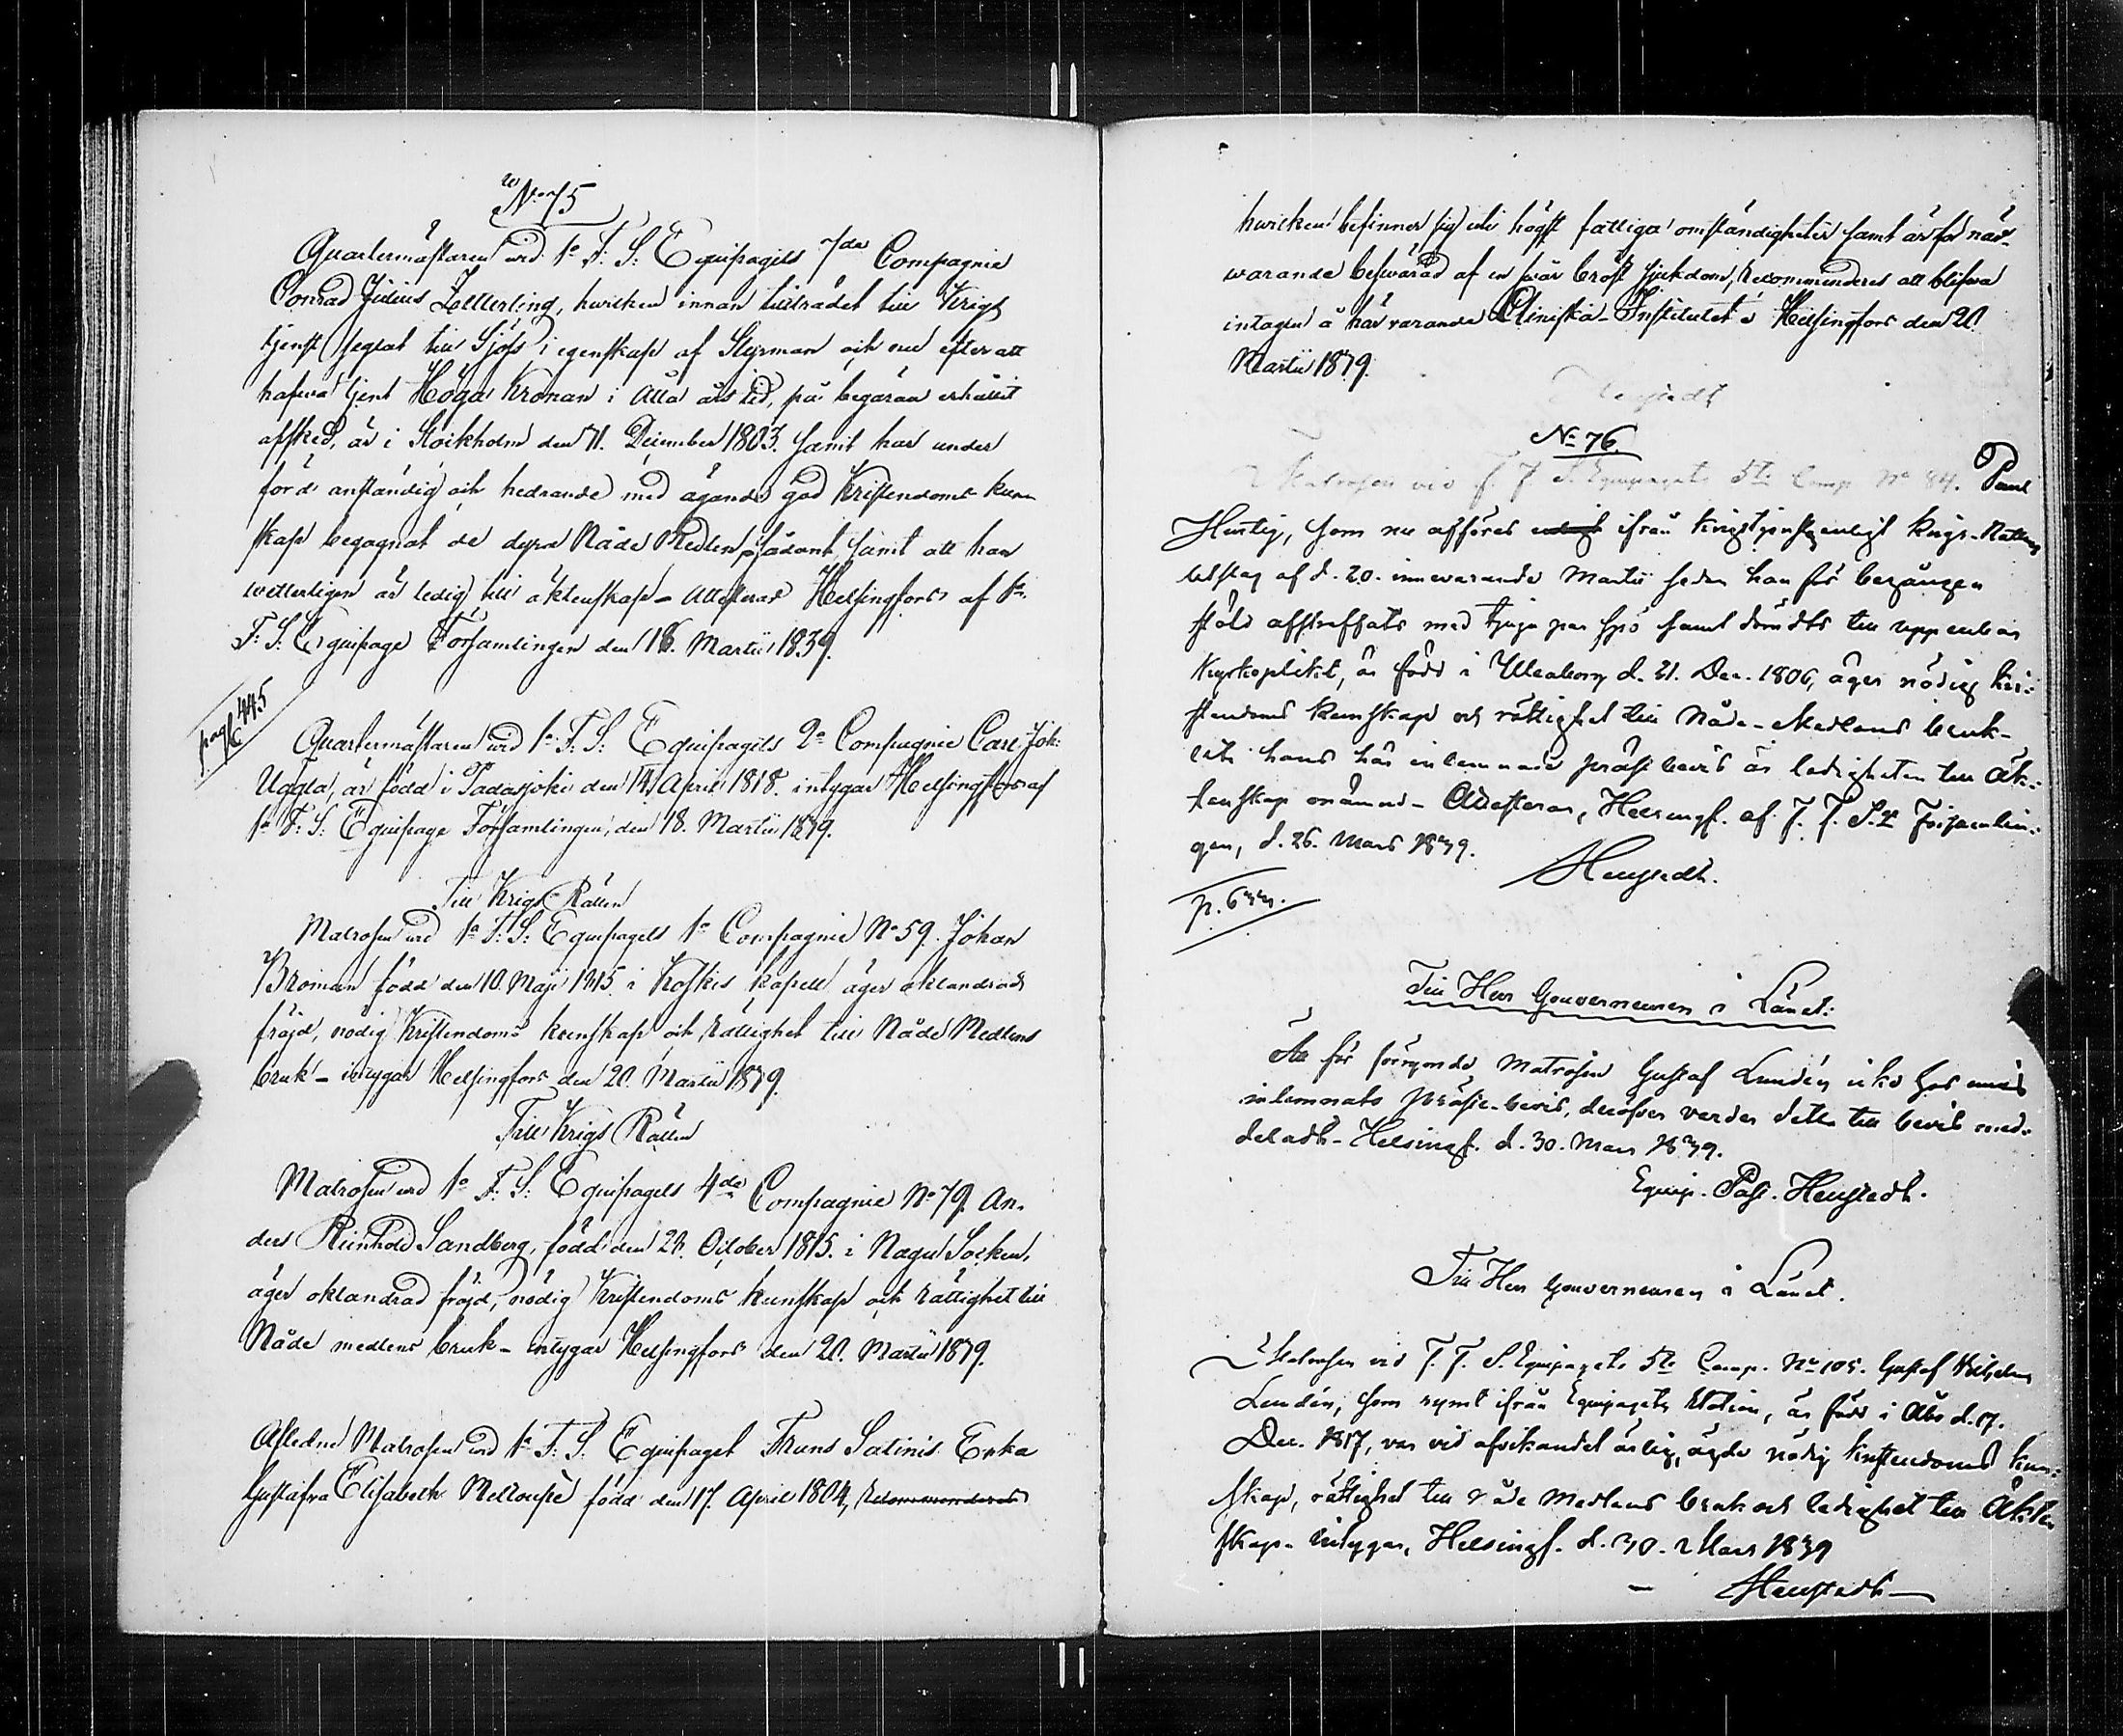 No 75
Quartermästaren vid 1a F: S: Equipagets 7de Compagnie
Conrad Julius Zetterling, hwilken innan tillträdet till Krigs
tjenst seglat till Sjöss i egenskap af Styrman och nu efter att
hafwa tjent Höga Kronan i åtta års tid, på begäran erhållit
afsked, är i Stockholm den 11. December 1803. samt har under
förd anständig och hedrande med ägande god Kristendoms kun
skap begagnat de dyra Nåde Medlen sådant, samt att han
wetterligen är ledig till äktenskap - Attesterar Helsingfors af 1a
F: S: Equipage Församlingen den 18. Martii 1839.
pag 445
Quartermästaren vid 1a F: S: Equipagets 2a Compagnie Carl Joh:
Uggla, är född i Padasjoki den 14 April 1818. intygar Helsingfors af
1a F: S: Equipage Församlingen, den 18. Martii 1839.
Till Krigs Rätten
Matrosen vid 1a F: S: Equipagets 1a Compagnie No 59. Johan
Broman född den 10. Maji 1815. i Koskis kapell äger oklandrad
fräjd, nödig Kristendoms kunskap och rättighet till Nåde Medlens
bruk - intygar Helsingfors den 20. Martii 1839.
Till Krigs Rätten
Matrosen vid 1a F: S: Equipagets 4de Compagnie No 79. An-
ders Reinhold Sandberg, född den 28. October 1815. i Nagu Socken,
äger oklandrad fräjd, nödig Kristendoms kunskap och rättighet till
Nåde medlens bruk - intygar Helsingfors den 20. Martii 1839.
Aflidne Matrosen vid 1a F: S: Equipaget Frans Salinis Enka
Gustafva Elisabeth född den 17. April 1804, Recommenderas
hwilken befinner sig uti högst fattiga omständigheter samt är för när-
warande beswärad af en swår bröst sjukdom, Recommenderas att blifwa
intagen å härvarande Cliniska-Institutet i Helsingfors den 20
Martii 1839.
Heustedt
No 76.
Matrosen vid F. F. S. Equipagets 5te Comp. No 84. Paul
Hurtig, som nu afföres ifrån krigstjensten enligt krigs-Rättens
utslag af d. 20. innewarande Martii sedan han för begången
stöld afstraffats med tjugu par spö samt dömdts till uppenbar
Kyrkoplikt, är född i Uleaborg d. 21. Dec. 1806, äger nödig Kri-
stendoms kunskap och rättighet till Nåde-Medlens bruk -
uti hans här inlemnade prästbevis är ledigheten till äk-
tenskap onämnd - Attesterar, Helsingf. af F. F. S. E Församlin-
gen, d. 26. Mars 1839.
Heustedt.
p. 633.
Till Herr Gouverneuren i Länet:
Att för förrymde Matrosen Gustaf Lundén icke hos mig
inlemnats präste-bevis, deröfver varder detta till bevis med-
deladt - Helsingf. d. 30. Mars 1839.
Equip. Past. Heustedt.
Till Herr Gouverneuren i Länet.
Matrosen vid F. F. S. Equipagets 5te Comp. No 105. Gustaf Wilhelm
Lundén, som rymt ifrån Equipagets Station, är född i Åbo d. 17.
Dec. 1817, var vid afvikandet ärlig, ägde nödig kristendoms kun-
skap, rättighet till nåde Medlens bruk och ledighet till Äkten
skap - intygar, Helsingf. d. 30. Mars 1839
Heustedt